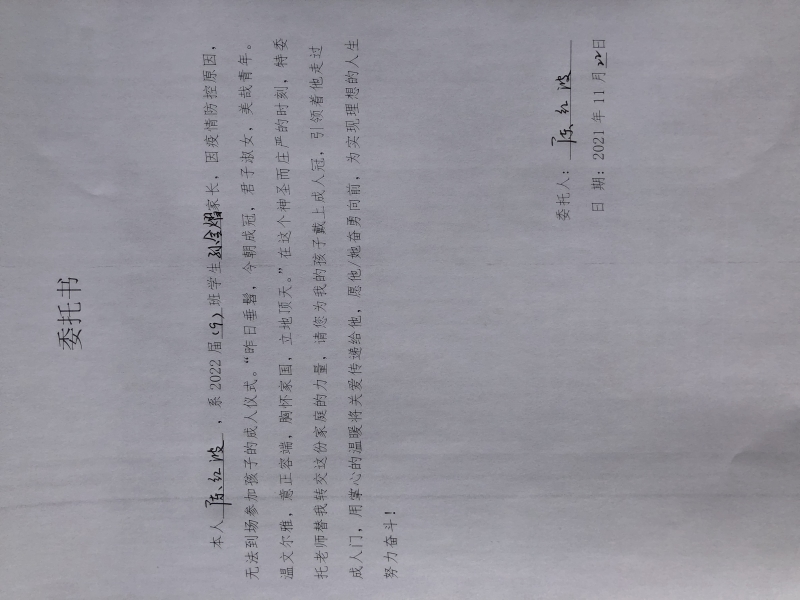 委托书
本人陈红波，系 2022 届（9）班学生孙金熠家长，因疫情防控原因，
无法到场参加孩子的成人仪式。“昨日垂髫，今朝成冠，君子淑女，美哉青年。
温文尔雅，意正容端，胸怀家国，立地顶天。”在这个神圣而庄严的时刻，特委
托老师替我转交这份家庭的力量，请您为我的孩子戴上成人冠，引领着他走过
成人门，用掌心的温暖将关爱传递给他，愿他/她奋勇向前，为实现理想的人生
努力奋斗！
委托人：陈红波
日 期：2021 年 11 月 22 日